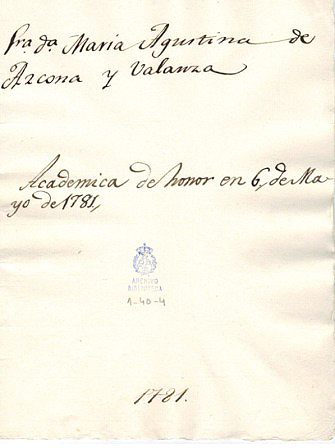 Sra. Da. Maria Agustina de
Azcona y Valanza
Academica de honor en 6, de Ma
yo de 1781,
ARCHIVO
BIBLIOTECA
1-40-4
1781.